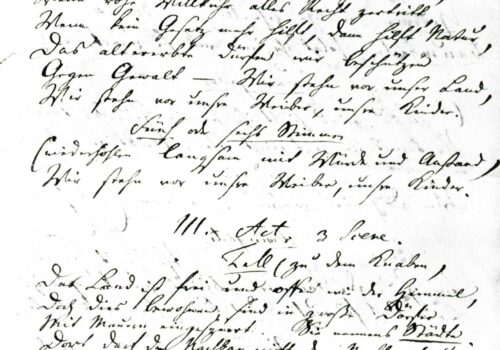 Wenn rohe Willkühr alles Recht zertritt,
Wenn kein Gesetz mehr hilft, dann hilft Natur,
Das altererbte dürfen wir beschützen
Gegen Gewalt — Wir stehn vor unser Land,
Wir stehn vor unsre Weiber, unsre Kinder.
Fünf oder sechs Stimmen
(wiederhohlen langsam mit Würde und Anstand,
Wir stehn vor unsre Weiber, unsre Kinder.
III. Act. 3 Scene.
Tell (zu dem Knaben,
Das Land ist frei und offen wie der Himmel,
Doch dies bewohnen, sind in große Dörfer
Mit Mauern eingesperrt. Sie nennens Städte
Dort darf der Nachbar